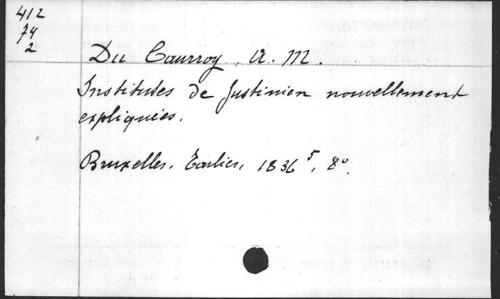 412
74
2
Du Caurroy, A. M.
Institutes de Justinien nouvellement
expliquées.
Bruxelles, Tarlier, 1836⁵, 8°.